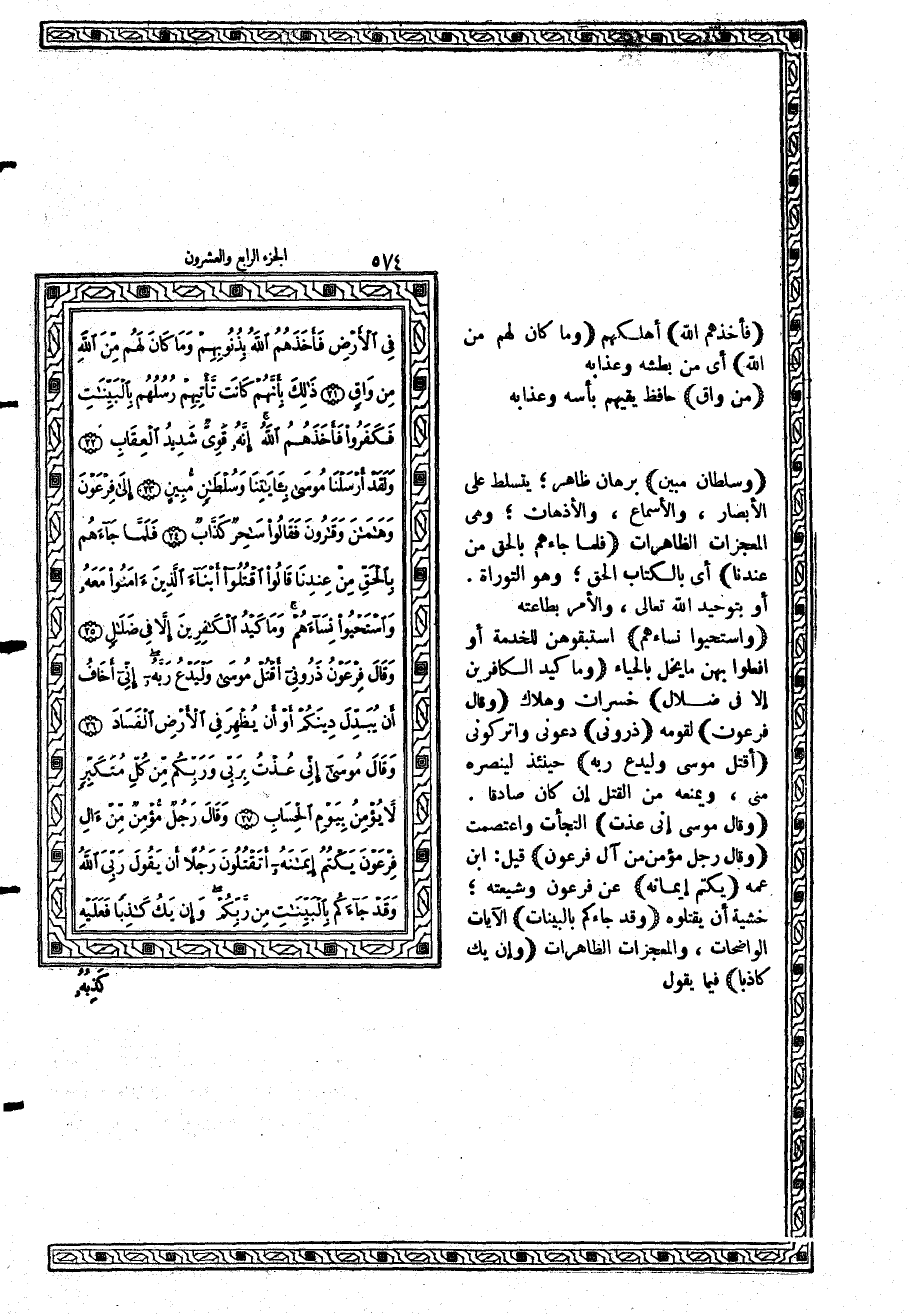 ٥٧٤
الجزء الرابع والعشرون
فِى ٱلْأَرْضِ فَأَخَذَهُمُ ٱللَّهُ بِذُنُوبِهِمْ وَمَا كَانَ لَهُم مِّنَ ٱللَّهِ
مِن وَاقٍ ﴿٢١﴾ ذَٰلِكَ بِأَنَّهُمْ كَانَت تَّأْتِيهِمْ رُسُلُهُم بِٱلْبَيِّنَٰتِ
فَكَفَرُوا۟ فَأَخَذَهُمُ ٱللَّهُ ۚ إِنَّهُۥ قَوِىٌّ شَدِيدُ ٱلْعِقَابِ ﴿٢٢﴾
وَلَقَدْ أَرْسَلْنَا مُوسَىٰ بِـَٔايَٰتِنَا وَسُلْطَٰنٍ مُّبِينٍ ﴿٢٣﴾ إِلَىٰ فِرْعَوْنَ
وَهَٰمَٰنَ وَقَٰرُونَ فَقَالُوا۟ سَٰحِرٌ كَذَّابٌ ﴿٢٤﴾ فَلَمَّا جَآءَهُم
بِٱلْحَقِّ مِنْ عِندِنَا قَالُوا۟ ٱقْتُلُوٓا۟ أَبْنَآءَ ٱلَّذِينَ ءَامَنُوا۟ مَعَهُۥ
وَٱسْتَحْيُوا۟ نِسَآءَهُمْ ۚ وَمَا كَيْدُ ٱلْكَٰفِرِينَ إِلَّا فِى ضَلَٰلٍ ﴿٢٥﴾
وَقَالَ فِرْعَوْنُ ذَرُونِىٓ أَقْتُلْ مُوسَىٰ وَلْيَدْعُ رَبَّهُۥٓ ۖ إِنِّىٓ أَخَافُ
أَن يُبَدِّلَ دِينَكُمْ أَوْ أَن يُظْهِرَ فِى ٱلْأَرْضِ ٱلْفَسَادَ ﴿٢٦﴾
وَقَالَ مُوسَىٰٓ إِنِّى عُذْتُ بِرَبِّى وَرَبِّكُم مِّن كُلِّ مُتَكَبِّرٍ
لَّا يُؤْمِنُ بِيَوْمِ ٱلْحِسَابِ ﴿٢٧﴾ وَقَالَ رَجُلٌ مُّؤْمِنٌ مِّنْ ءَالِ
فِرْعَوْنَ يَكْتُمُ إِيمَٰنَهُۥٓ أَتَقْتُلُونَ رَجُلًا أَن يَقُولَ رَبِّىَ ٱللَّهُ
وَقَدْ جَآءَكُم بِٱلْبَيِّنَٰتِ مِن رَّبِّكُمْ ۖ وَإِن يَكُ كَٰذِبًا فَعَلَيْهِ
كَذِبُهُۥ
(فأخذهم الله) أهلكهم (وما كان لهم من
الله) أى من بطشه وعذابه
(من واق) حافظ يقيهم بأسه وعذابه
(وسلطان مبين) برهان ظاهر ؛ يتسلط على
الأبصار ، والأسماع ، والأذهان ؛ وهى
المعجزات الظاهرات (فلما جاءهم بالحق من
عندنا) أى بالكتاب الحق ؛ وهو التوراة .
أو بتوحيد الله تعالى ، والأمر بطاعته
(واستحيوا نساءهم) استبقوهن للخدمة أو
افعلوا بهن مايخل بالحياء (وما كيد الكافرين
إلا فى ضلال) خسران وهلاك (وقال
فرعون) لقومه (ذرونى) دعونى واتركونى
(أقتل موسى وليدع ربه) حينئذ لينصره
منى ، ويمنعه من القتل إن كان صادقا .
(وقال موسى إنى عذت) التجأت واعتصمت
(وقال رجل مؤمن من آل فرعون) قيل: ابن
عمه (يكتم إيمانه) عن فرعون وشيعته ؛
خشية أن يقتلوه (وقد جاءكم بالبينات) الآيات
الواضحات ، والمعجزات الظاهرات (وإن يك
كاذبا) فيما يقول